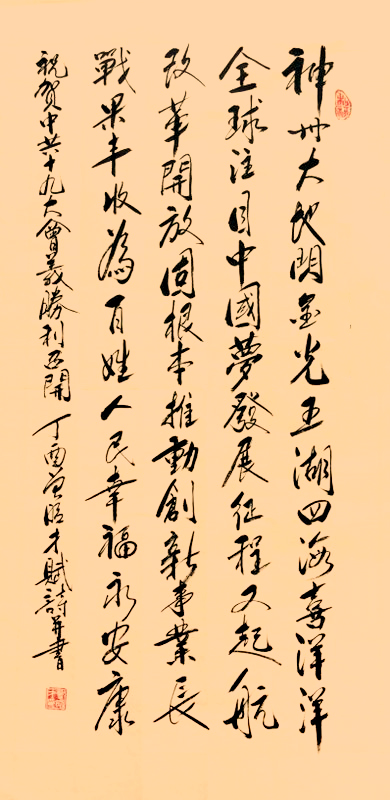 神州大地閃金光五湖四海喜洋洋
全球注目中國夢發展征程又起航
改革開放固根本推動創新事業長
戰果丰收為百姓人民幸福永安康
祝賀中共十九大會義勝利召開 丁酉曾昭才賦詩并書